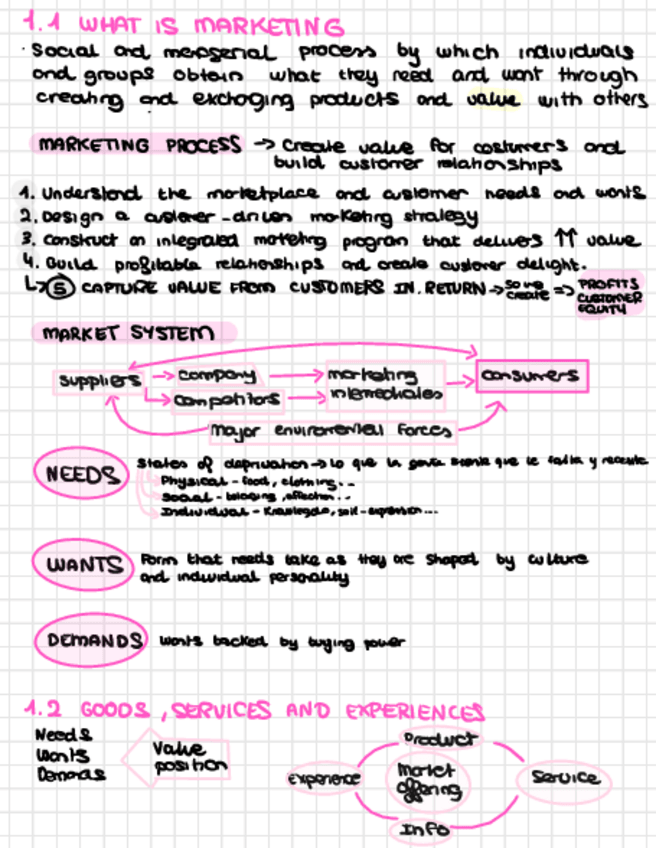 1.1 WHAT IS MARKETING
· Social and managerial process by which individuals
and groups obtain what they need and want through
creating and exchaging products and value with others
MARKETING PROCESS → Create value for costumers and
build customer relationships
1. Understand the marketplace and customer needs and wants
2. Design a customer-driven marketing strategy
3. Construct an integrated marketing program that delivers ↑↑ value
4. Build profitable relationships and create customer delight.
↳ 5 CAPTURE VALUE FROM CUSTOMERS IN RETURN → so we create ⇒ PROFITS
CUSTOMER
EQUITY
MARKET SYSTEM
suppliers → company → marketing
intermediaries → consumers
competitors
major environmental forces
NEEDS
States of deprivation → lo que la gente siente que le falta y necesite
Physical - food, clothing...
Social - belonging, affection...
Individual - Knowlegde, self-expression...
WANTS
Form that needs take as they are shaped by culture
and individual personality
DEMANDS wants backed by buying power
1.2 GOODS, SERVICES AND EXPERIENCES
Needs
Wants
Demands
Value
position
Product
Experience
Market
offering
Service
Info